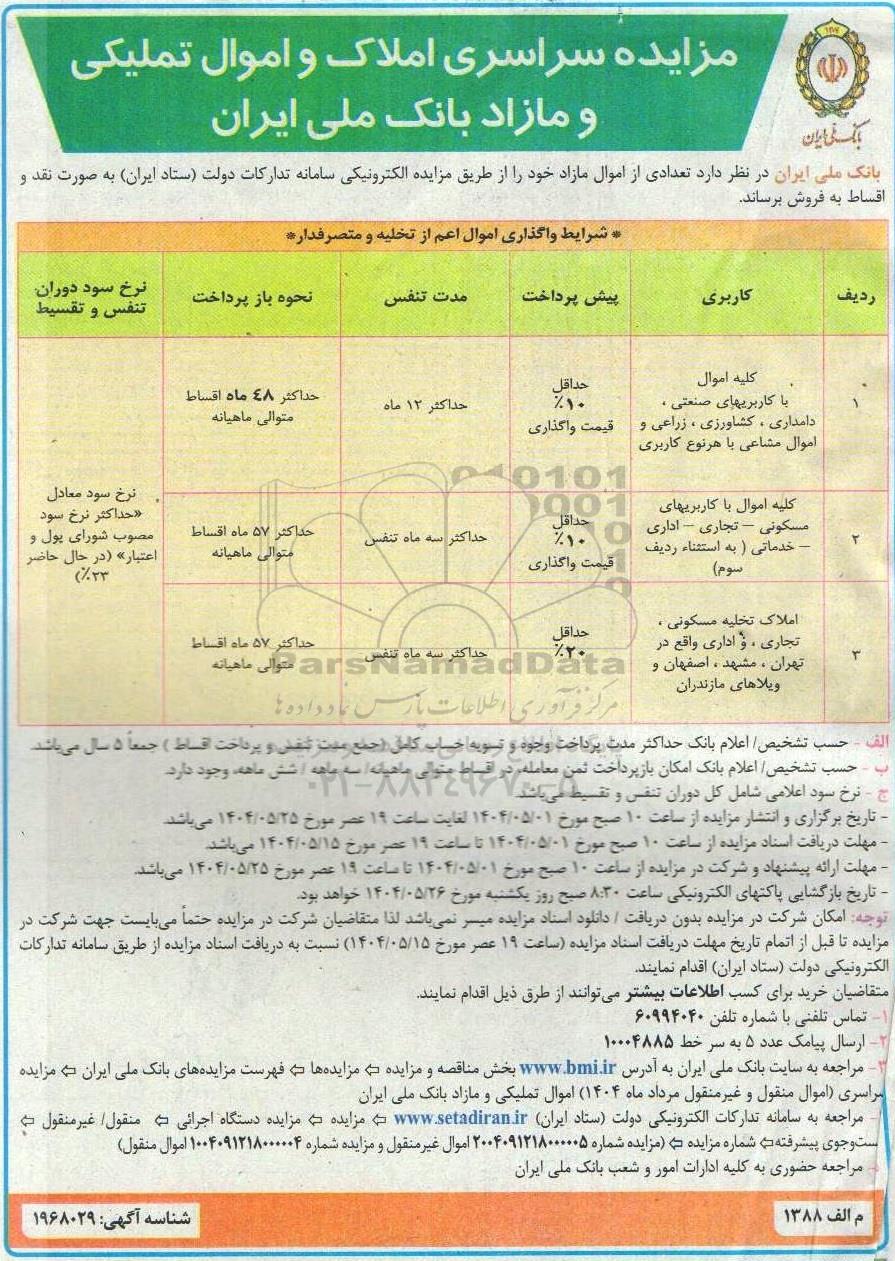 مزایده سراسری املاک و اموال تملیکی
و مازاد بانک ملی ایران
بانک ملی ایران
بانک ملی ایران در نظر دارد تعدادی از اموال مازاد خود را از طریق مزایده الکترونیکی سامانه تدارکات دولت (ستاد ایران) به صورت نقد و
اقساط به فروش برساند.
* شرایط واگذاری اموال اعم از تخلیه و متصرفدار*
ردیف
کاربری
پیش پرداخت
مدت تنفس
نحوه باز پرداخت
نرخ سود دوران
تنفس و تقسیط
۱
کلیه اموال
با کاربریهای صنعتی ،
دامداری ، کشاورزی ، زراعی و
اموال مشاعی با هرنوع کاربری
حداقل
۱۰٪
قیمت واگذاری
حداکثر ۱۲ ماه
حداکثر ۴۸ ماه اقساط
متوالی ماهیانه
نرخ سود معادل
«حداکثر نرخ سود
مصوب شورای پول و
اعتبار» (در حال حاضر
۲۳٪)
۲
کلیه اموال با کاربریهای
مسکونی – تجاری – اداری
– خدماتی ( به استثناء ردیف
سوم)
حداقل
۱۰٪
قیمت واگذاری
حداکثر سه ماه تنفس
حداکثر ۵۷ ماه اقساط
متوالی ماهیانه
۳
املاک تخلیه مسکونی ،
تجاری ، و اداری واقع در
تهران ، مشهد ، اصفهان و
ویلاهای مازندران
حداقل
۲۰٪
حداکثر سه ماه تنفس
حداکثر ۵۷ ماه اقساط
متوالی ماهیانه
ParsNamadData
مرکز فرآوری اطلاعات پارس نماد داده ها
۰۲۱-۸۸۳۴۹۶۷۰-۵
الف - حسب تشخیص/ اعلام بانک حداکثر مدت پرداخت وجوه و تسویه حساب کامل (جمع مدت تنفس و پرداخت اقساط ) جمعاً ۵ سال می‌باشد.
ب - حسب تشخیص/ اعلام بانک امکان بازپرداخت ثمن معامله، در اقساط متوالی ماهیانه/ سه ماهه / شش ماهه، وجود دارد.
ج - نرخ سود اعلامی شامل کل دوران تنفس و تقسیط می‌باشد.
- تاریخ برگزاری و انتشار مزایده از ساعت ۱۰ صبح مورخ ۱۴۰۴/۰۵/۰۱ لغایت ساعت ۱۹ عصر مورخ ۱۴۰۴/۰۵/۲۵ می‌باشد.
- مهلت دریافت اسناد مزایده از ساعت ۱۰ صبح مورخ ۱۴۰۴/۰۵/۰۱ تا ساعت ۱۹ عصر مورخ ۱۴۰۴/۰۵/۱۵ می‌باشد.
- مهلت ارائه پیشنهاد و شرکت در مزایده از ساعت ۱۰ صبح مورخ ۱۴۰۴/۰۵/۰۱ تا ساعت ۱۹ عصر مورخ ۱۴۰۴/۰۵/۲۵ می‌باشد.
- تاریخ بازگشایی پاکتهای الکترونیکی ساعت ۸:۳۰ صبح روز یکشنبه مورخ ۱۴۰۴/۰۵/۲۶ خواهد بود.
توجه: امکان شرکت در مزایده بدون دریافت / دانلود اسناد مزایده میسر نمی‌باشد لذا متقاضیان شرکت در مزایده حتماً می‌بایست جهت شرکت در
مزایده تا قبل از اتمام تاریخ مهلت دریافت اسناد مزایده (ساعت ۱۹ عصر مورخ ۱۴۰۴/۰۵/۱۵) نسبت به دریافت اسناد مزایده از طریق سامانه تدارکات
الکترونیکی دولت (ستاد ایران) اقدام نمایند.
متقاضیان خرید برای کسب اطلاعات بیشتر می‌توانند از طرق ذیل اقدام نمایند.
۱- تماس تلفنی با شماره تلفن ۶۰۹۹۴۰۴۰
۲- ارسال پیامک عدد ۵ به سر خط ۱۰۰۰۴۸۸۵
۳- مراجعه به سایت بانک ملی ایران به آدرس www.bmi.ir بخش مناقصه و مزایده ⇦ مزایده‌ها ⇦ فهرست مزایده‌های بانک ملی ایران ⇦ مزایده
سراسری (اموال منقول و غیرمنقول مرداد ماه ۱۴۰۴) اموال تملیکی و مازاد بانک ملی ایران
- مراجعه به سامانه تدارکات الکترونیکی دولت (ستاد ایران) www.setadiran.ir ⇦ مزایده ⇦ مزایده دستگاه اجرائی ⇦ منقول/ غیرمنقول ⇦
ست‌وجوی پیشرفته⇦ شماره مزایده ⇦ (مزایده شماره ۲۰۰۴۰۹۱۲۱۸۰۰۰۰۰۵ اموال غیرمنقول و مزایده شماره ۱۰۰۴۰۹۱۲۱۸۰۰۰۰۰۴ اموال منقول)
- مراجعه حضوری به کلیه ادارات امور و شعب بانک ملی ایران
م الف ۱۳۸۸
شناسه آگهی: ۱۹۶۸۰۲۹